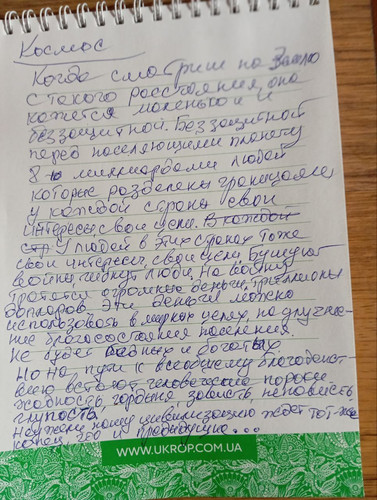 Космос
Когда смотриш на Землю
с такого расстояния, она
кажется маленькой и
беззащитной. Беззащитной
перед населяющими планету
8-ю миллиардами людей
которые разделены границами
у каждой страны свои
интересы, свои цели. В каждой
стр У людей в этих странах тоже
свои интересы, свои цели. Бушуют
войны, гибнут люди. На войну
тратятся огромные деньги, триллионы
долларов. Эти деньги можно
использовать в мирных целях, на улучше-
ние благосостояния населения.
Не будет бедных и богатых
Но на пути к всеобщему благоденст-
вию встают человеческие пороки
жадность, гордыня, зависть, ненависть,
глупость.
Неужели нашу цивилизацию ждет тот-же
конец, что и предыдущую...
WWW.UKROP.COM.UA